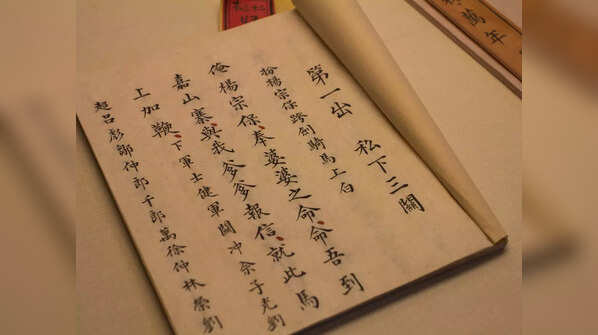 萬年
第一出 私下三關
扮楊宗保跨劍騎馬上白
俺楊宗保、奉婆婆之命、命吾到
嘉山寨與我爹爹報信、就此馬
上加鞭、下 軍士健軍 冲余子光劉
趙呂彭鄒仲郎千郎萬徐仲林榮劉